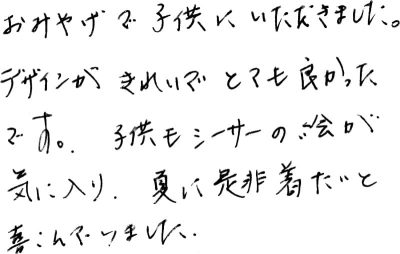 おみやげで子供にいただきました。
デザインがきれいでとても良かった
です。子供もシーサーの絵が
気に入り、夏に是非着たいと
喜こんでいました。